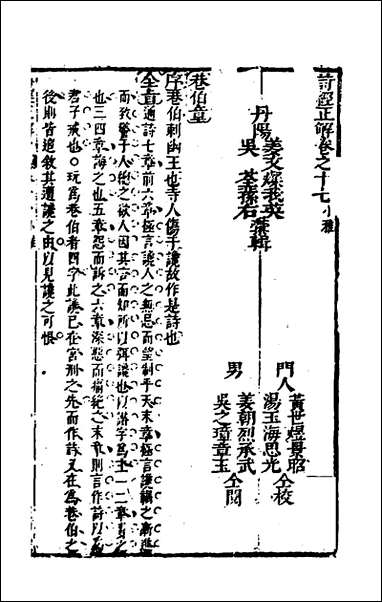 詩經正解卷之十七小雅
丹陽
姜文燦我英
吳荃蓀右彙輯
門人
黃世煜景昭
湯玉海思光仝校
男
姜朝烈承武
吳之璋章玉仝閱
巷伯章
序巷伯刺幽王也寺人傷于讒故作是詩也
全旨通詩七章前六章極言讒人之無忌而望制乎天末章極言讒譖之漸進
而致警于人總之欲人因其言而知所以弭讒也以譖字為主一二章
也三四章誨之也五章怨而訴之六章深惡而痛絕之末章則言作詩以
君子戒也玩為巷伯者四字此讒已在宮刑之先而作詩又在為巷伯之
後則皆追敘其遭讒之由以見讒之可恨